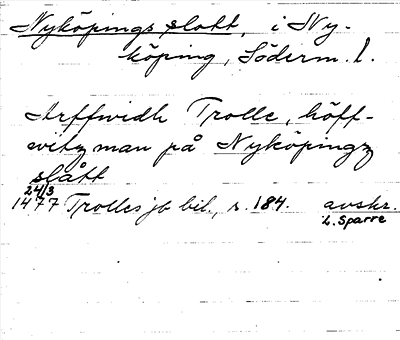 Nyköpings slott, i Ny-
köping, Söderm. l.
Arffwidh Trolle, höff-
witzman på Nyköpingz
slått
24/3
1477 Trolles jb bil., s. 184. avskr.
L. Sparre